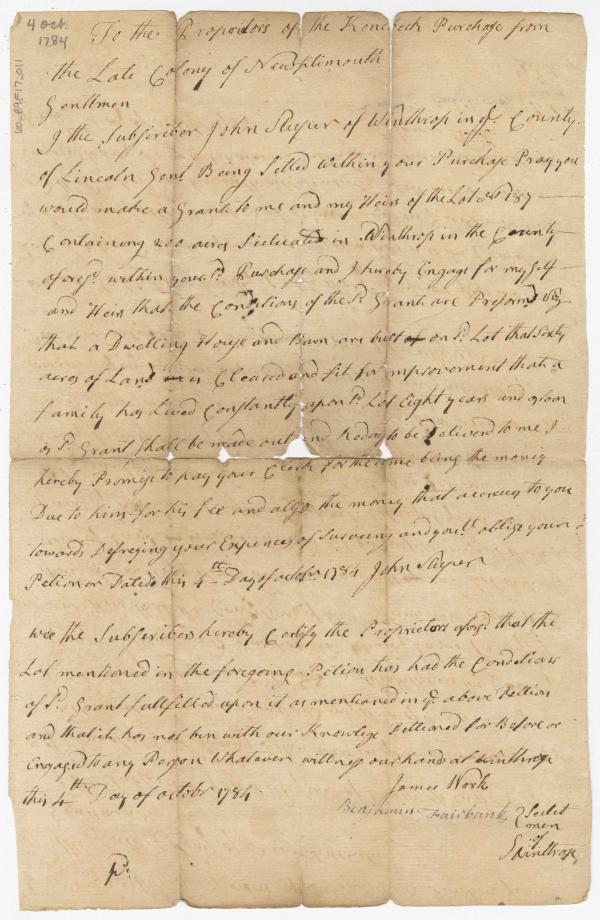 4 Oct.
1784
60_89F17_011
To the Propriators of the Kenebeck Purchase from
the Late Colony of New Plimouth
Gentlmen
I the Subscriber John Sleeper of Winthrop in ye County
of Lincoln Gent Being Setled within your Purchase Pray you
would make a Grant to me and my Heirs of the Lot No 187
Containing 200 acres Situated in Winthrop in the County
aforesd within your sd Purchase and I hereby Engage for my self
and Heirs that the Conditions of the sd Grant are Preformd
that a Dwelling House and Barn are built on sd Lot that Sixty
acres of Land is Cleared and fit for improvement that a
family has Lived Constantly upon sd Lot Eight years and as soon
as sd Grant shall be made out and Ready to be Delivered to me I
hereby Promise to pay your Clerk for the time being the money
Due to him for his fee and also the money that accrues to you
towards Defreying your Expences of Surveing and youl oblige your
Petionor Dated this 4th Day of octobr 1784 John Sleeper
wee the Subscribers hereby Certify the Proprietors aforsd that the
Lot mentioned in the foregoing Petion has had the Conditions
of sd Grant fullfilled upon it as mentioned in ye above Petion
and that it has not bin with our Knowlege Petioned for Before or
Engaged to any Person Whatever wittness our hands at winthrop
this 4th Day of octobr 1784
James Work
Benjamin Fairbank
Select
men
of
Winthrop